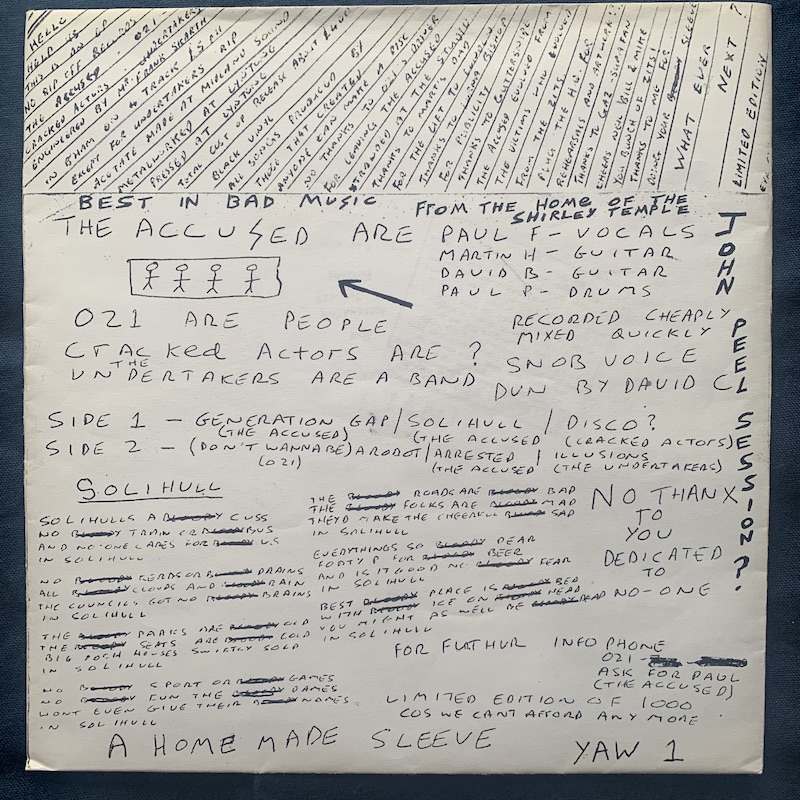 HELLO
HELP US
THIS IS AN EP
NO RIP OFF RECORDS. 021.
THE ACCUSED. UNDERTAKERS
CRACKED ACTORS.
ENGINEERED BY MR. FRANK SKARTH
IN BHAM ON 4 TRACK 15
EXCEPT FOR UNDERTAKERS RIP
ACETATE MADE AT MIDLAND SOUND
METALWORKED AT LYNTONE
PRESSED AT LYNTONE
TOTAL COST OF RELEASE ABOUT £400
BLACK VINYL
ALL SONGS PRODUCED BY
THOSE THAT CREATED
ANYONE CAN MAKE A DISC
NO THANKS TO 021'S DRIVER
FOR LEAVING THE ACCUSED
STRANDED AT THE STUDIO
THANKS TO MART'S DAD
FOR THE LIFT TO LONDON
THANKS TO BISHOP
FOR PUBLICITY
THANKS TO
THE ACCUSED EVOLVED FROM
THE VICTIMS WHO EVOLVED
FROM THE ZITS.
THE H.Q. FOR
REHEARSALS AND ARTWORK
THANKS TO GAZ - SUPA FAN
CHEERS NICK BILL & MIKE
YOU BUNCH OF ZITS!
THANKS TO ME FOR
DOING YOUR SLEEVE
WHAT EVER NEXT?
LIMITED EDITION
BEST IN BAD MUSIC
FROM THE HOME OF THE
SHIRLEY TEMPLE
THE ACCUSED ARE PAUL F - VOCALS
MARTIN H - GUITAR
DAVID B - GUITAR
PAUL P - DRUMS
JOHN PEEL SESSION?
021 ARE PEOPLE
CrACKed Actors ARE ?
THE
UNDERTAKERS ARE A BAND
RECORDED CHEAPLY
MIXED QUICKLY
SNOB VOICE
DUN BY DAVID C
SIDE 1 - GENERATION GAP / SOLIHULL / DISCO?
(THE ACCUSED) (THE ACCUSED (CRACKED ACTORS)
SIDE 2 - (DON'T WANNABE) AROBOT / ARRESTED / ILLUSIONS
(021) (THE ACCUSED (THE UNDERTAKERS)
SOLIHULL
SOLIHULLS A BLOODY CUSS
NO BLOODY TRAIN OR BLOODY BUS
AND NO-ONE CARES FOR BLOODY US
IN SOLIHULL
NO BLOODY KERBS OR BLOODY DRAINS
ALL BLOODY CLOUDS AND BLOODY RAIN
THE COUNCILS GOT NO BLOODY BRAINS
IN SOLIHULL
THE BLOODY PARKS ARE BLOODY OLD
THE BLOODY SEATS ARE BLOODY COLD
BIG POSH HOUSES SWIFTLY SOLD
IN SOLIHULL
NO BLOODY SPORT OR BLOODY GAMES
NO BLOODY FUN THE BLOODY DAMES
WONT EVEN GIVE THEIR BLOODY NAMES
IN SOLIHULL
THE BLOODY ROADS ARE BLOODY BAD
THE BLOODY FOLKS ARE BLOODY MAD
THEYD MAKE THE CHEERFUL BLOODY SAD
IN SOLIHULL
EVERYTHINGS SO BLOODY DEAR
FORTY P FOR BLOODY BEER
AND IS IT GOOD NO BLOODY FEAR
IN SOLIHULL
BEST BLOODY PLACE IS BLOODY BED
WITH BLOODY ICE ON BLOODY HEAD
YOU MIGHT AS WELL BE BLOODY DEAD
IN SOLIHULL
NO THANX
TO
YOU
DEDICATED
TO
NO-ONE
FOR FURTHUR INFO PHONE
021 -
ASK FOR PAUL
(THE ACCUSED)
LIMITED EDITION OF 1000
COS WE CANT AFFORD ANY MORE.
A HOME MADE SLEEVE
YAW 1